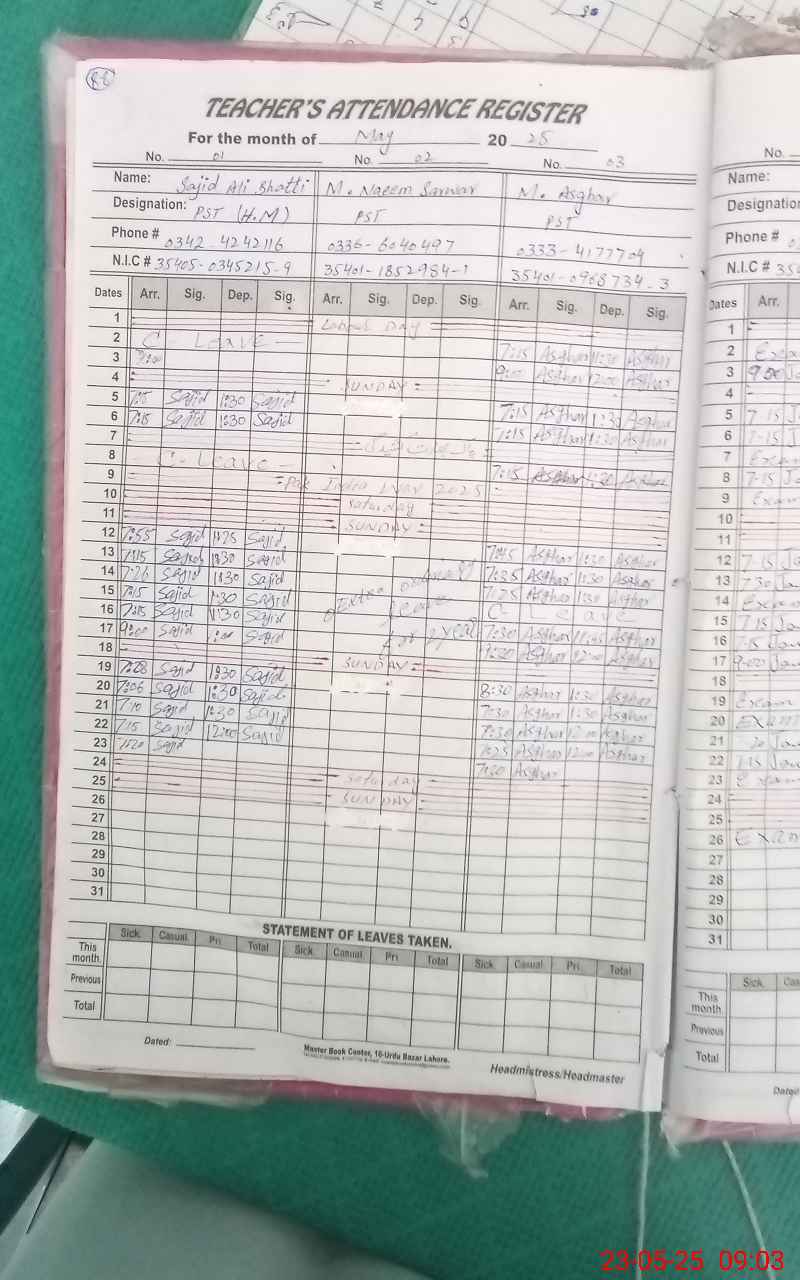 TEACHER'S ATTENDANCE REGISTER
For the month of May 20 25
No. 01 No. 02 No. 03
Name: Sajid Ali Bhatti M. Naeem Sarwar M. Asghar
Designation: PST (H.M) PST PST
Phone # 0342-4242116 0336-6040497 0333-4177704
N.I.C # 35405-0345215-9 35401-1852984-1 35401-0968734-3
Dates Arr. Sig. Dep. Sig. Arr. Sig. Dep. Sig. Arr. Sig. Dep. Sig.
1 Labour Day
2 C-Leave 7:15 Asghar 11:30 Asghar
3 9:00 9:00 Asghar 12:00 Asghar
4 SUNDAY
5 Sajid 1:30 Sajid 7:15 Asghar 1:30 Asghar
6 7:15 Sajid 1:30 Sajid 7:15 Asghar 1:30 Asghar
7
8 C-Leave 7:15 Asghar 1:30 Asghar
9 Pak India War 2025
10 Saturday
11 SUNDAY
12 7:55 Sajid 1:25 Sajid Asghar 1:30 Asghar
13 Sajid 1:30 Sajid 7:25 Asghar 1:30 Asghar
14 7:26 Sajid 1:30 Sajid Extra ordinary 7:25 Asghar 1:30 Asghar
15 7:15 Sajid 1:30 Sajid leave C-Leave
16 7:15 Sajid 1:30 Sajid for 2 year 7:30 Asghar Asghar
17 9:00 Sajid Sajid Asghar 12:00 Asghar
18 SUNDAY
19 7:08 Sajid 1:30 Sajid 8:30 Asghar 1:30 Asghar
20 7:06 Sajid 1:30 Sajid 7:30 Asghar 1:30 Asghar
21 7:10 Sajid 1:30 Sajid 7:30 Asghar Asghar
22 7:15 Sajid 12:00 Sajid 7:25 Asghar 12:00 Asghar
23 7:20 Sajid 7:20 Asghar
24 Saturday
25 SUNDAY
26
27
28
29
30
31
STATEMENT OF LEAVES TAKEN.
Sick. Casual. Pri. Total Sick. Casual Pri. Total Sick. Casual. Pri. Total
This month.
Previous
Total
Dated:
Master Book Center, 16-Urdu Bazar Lahore.
Headmistress/Headmaster
No.
Name:
Designation
Phone #
N.I.C # 350
Dates Arr.
1
2 Exam
3 9:00
4
5 7-15
6 7-15
7 Exam
8 7-15
9 Exam
10
11
12 7-15
13 7:30
14 Exam
15 7-15
16 7-15
17 9-00
18
19 Exam
20 Exam
21
22
23 Exam
24
25
26 Exam
27
28
29
30
31
Sick.
This month
Previous
Total
Dated
23-05-25 09:03